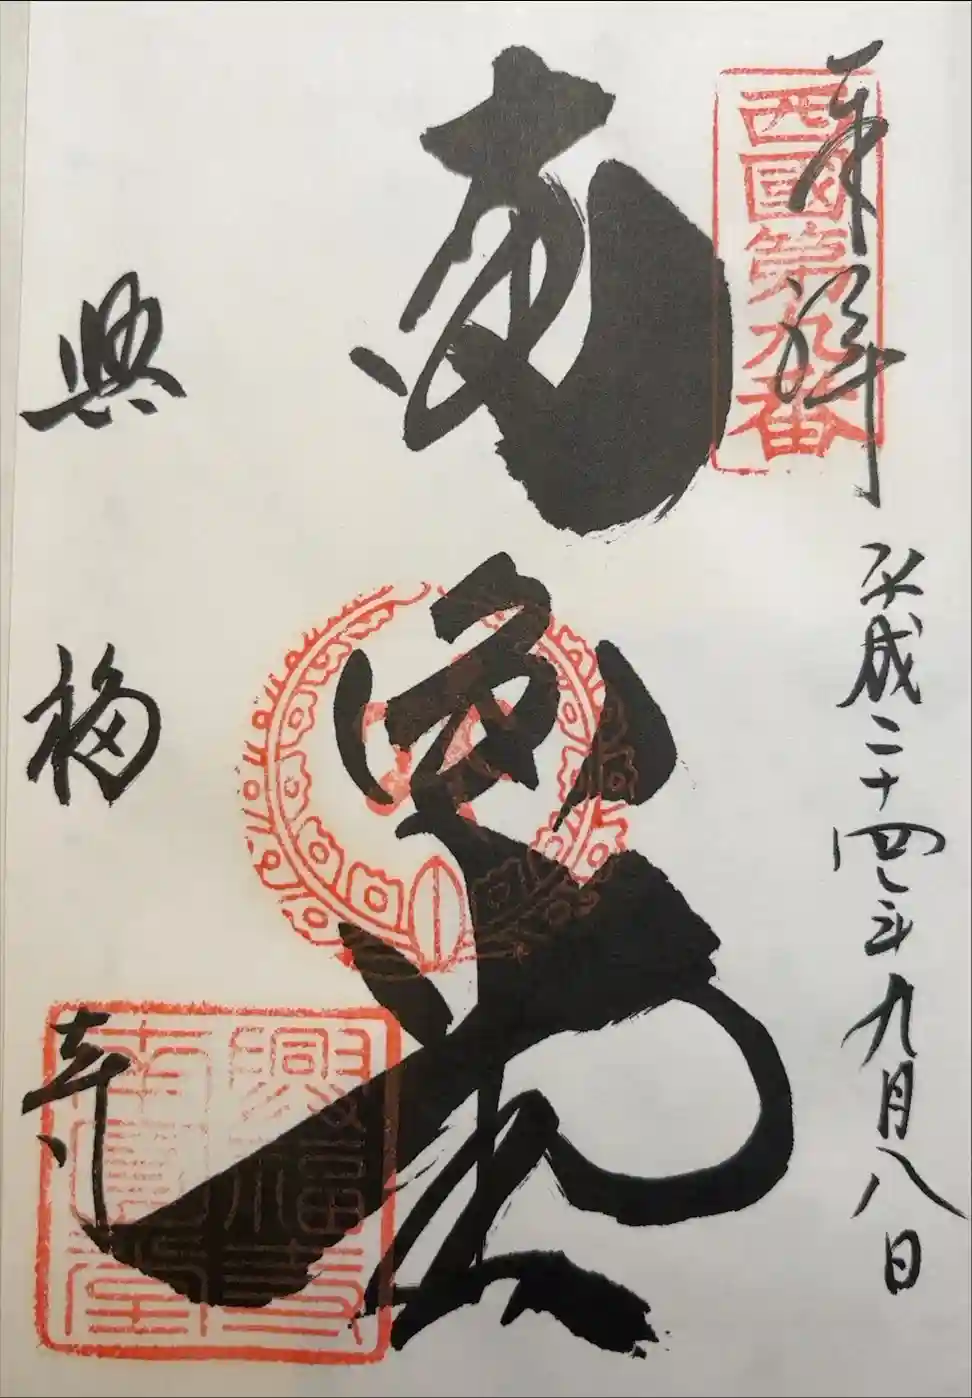 奉拝 平成二十四年九月八日
西國第九番
南圓堂
興福寺
興福寺南圓堂